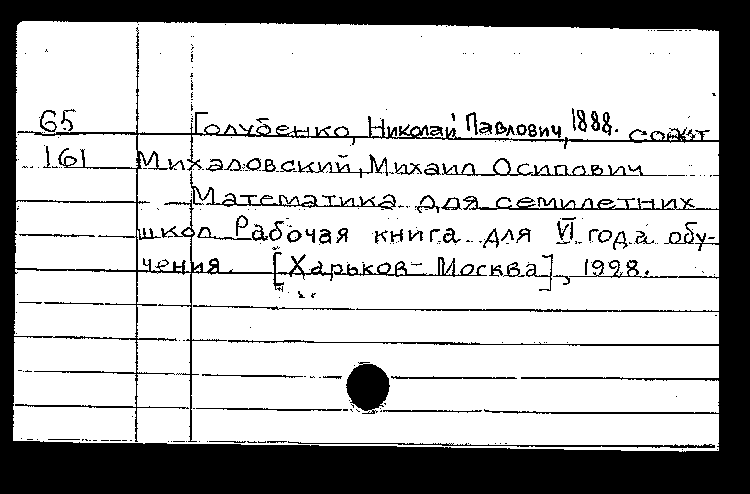 65 Голубенко, Николай Павлович, 1888. соавт
161 Михаловский, Михаил Осипович
Математика для семилетних
школ Рабочая книга для VI года обу-
чения. [Харьков- Москва], 1928.